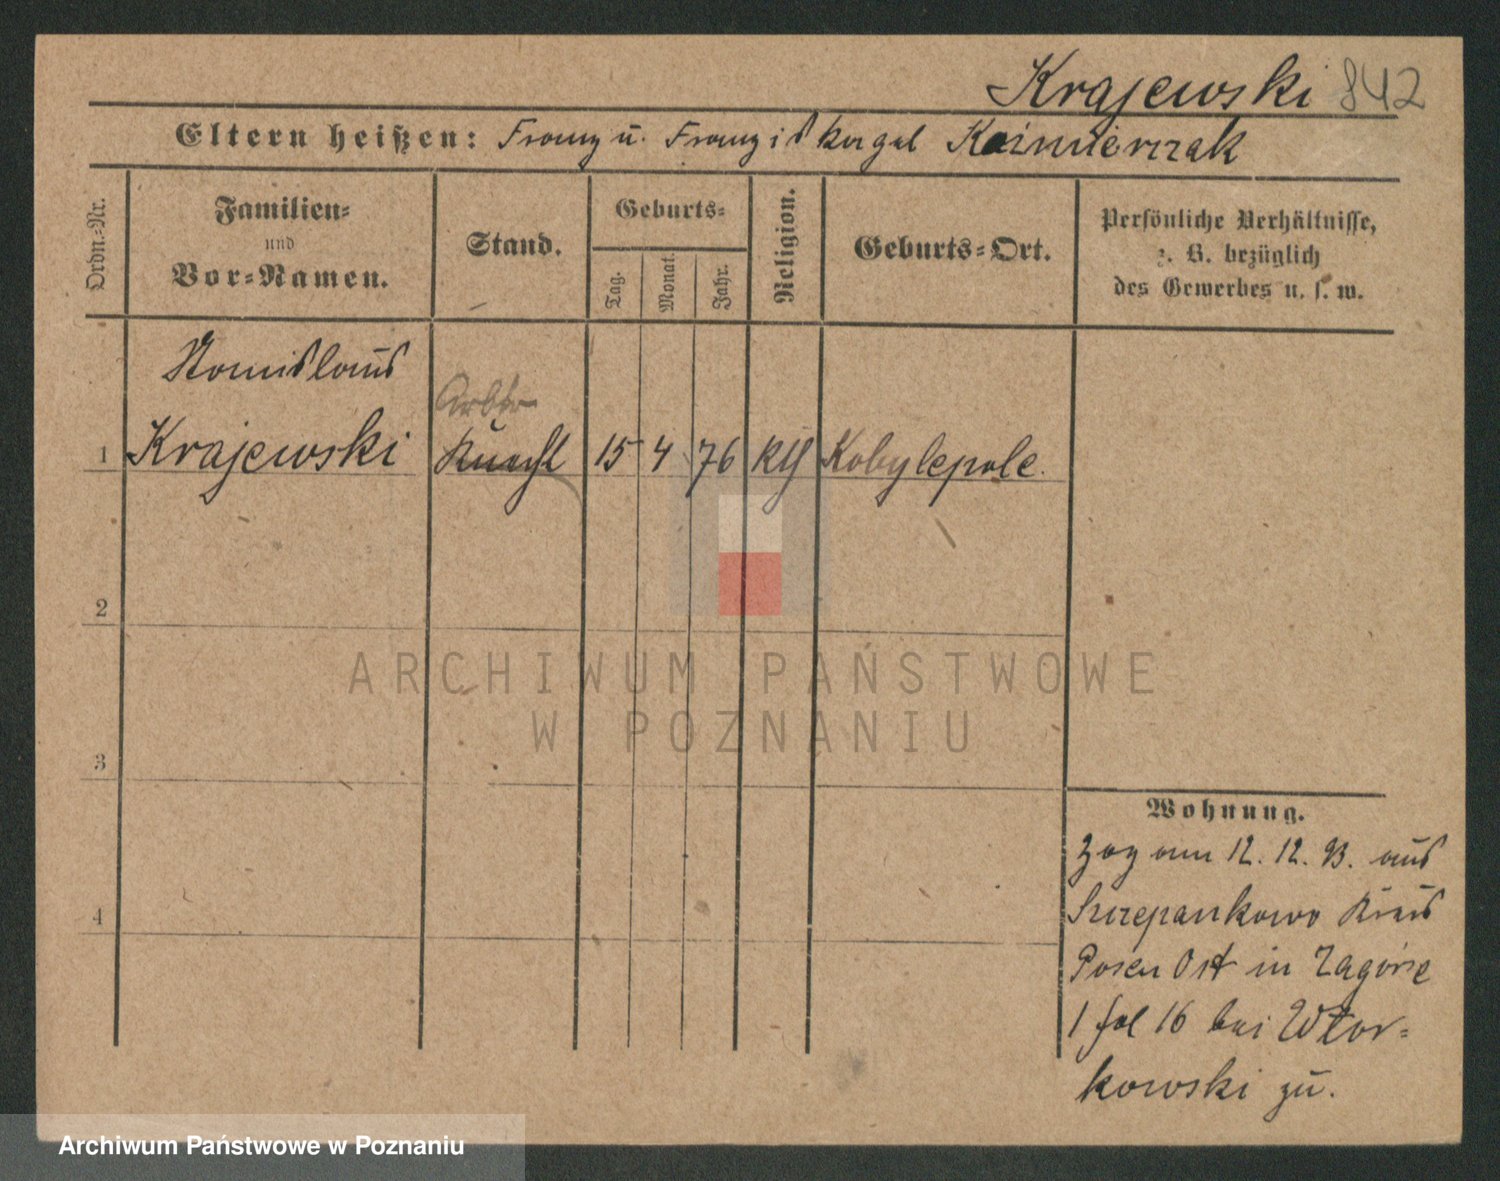 Krajewski 842
Eltern heißen: Franz u. Franziska geb Kaźmierczak
Ordn.-Nr.
Familien-
und
Vor-Namen.
Stand.
Geburts-
Tag.
Monat.
Jahr.
Religion.
Geburts-Ort.
Persönliche Verhältnisse,
z. B. bezüglich
des Gewerbes u. s. w.
Stanislaus
Arbtr
1 Krajewski Knecht 15 4 76 kth Kobylepole.
2
3
4
Wohnung.
Zog am 12. 12. 93. aus
Szczepankowo Kreis
Posen Ost in Zagórze
1 fol 16 bei Wtor=
kowski zu.
ARCHIWUM PAŃSTWOWE
W POZNANIU
Archiwum Państwowe w Poznaniu